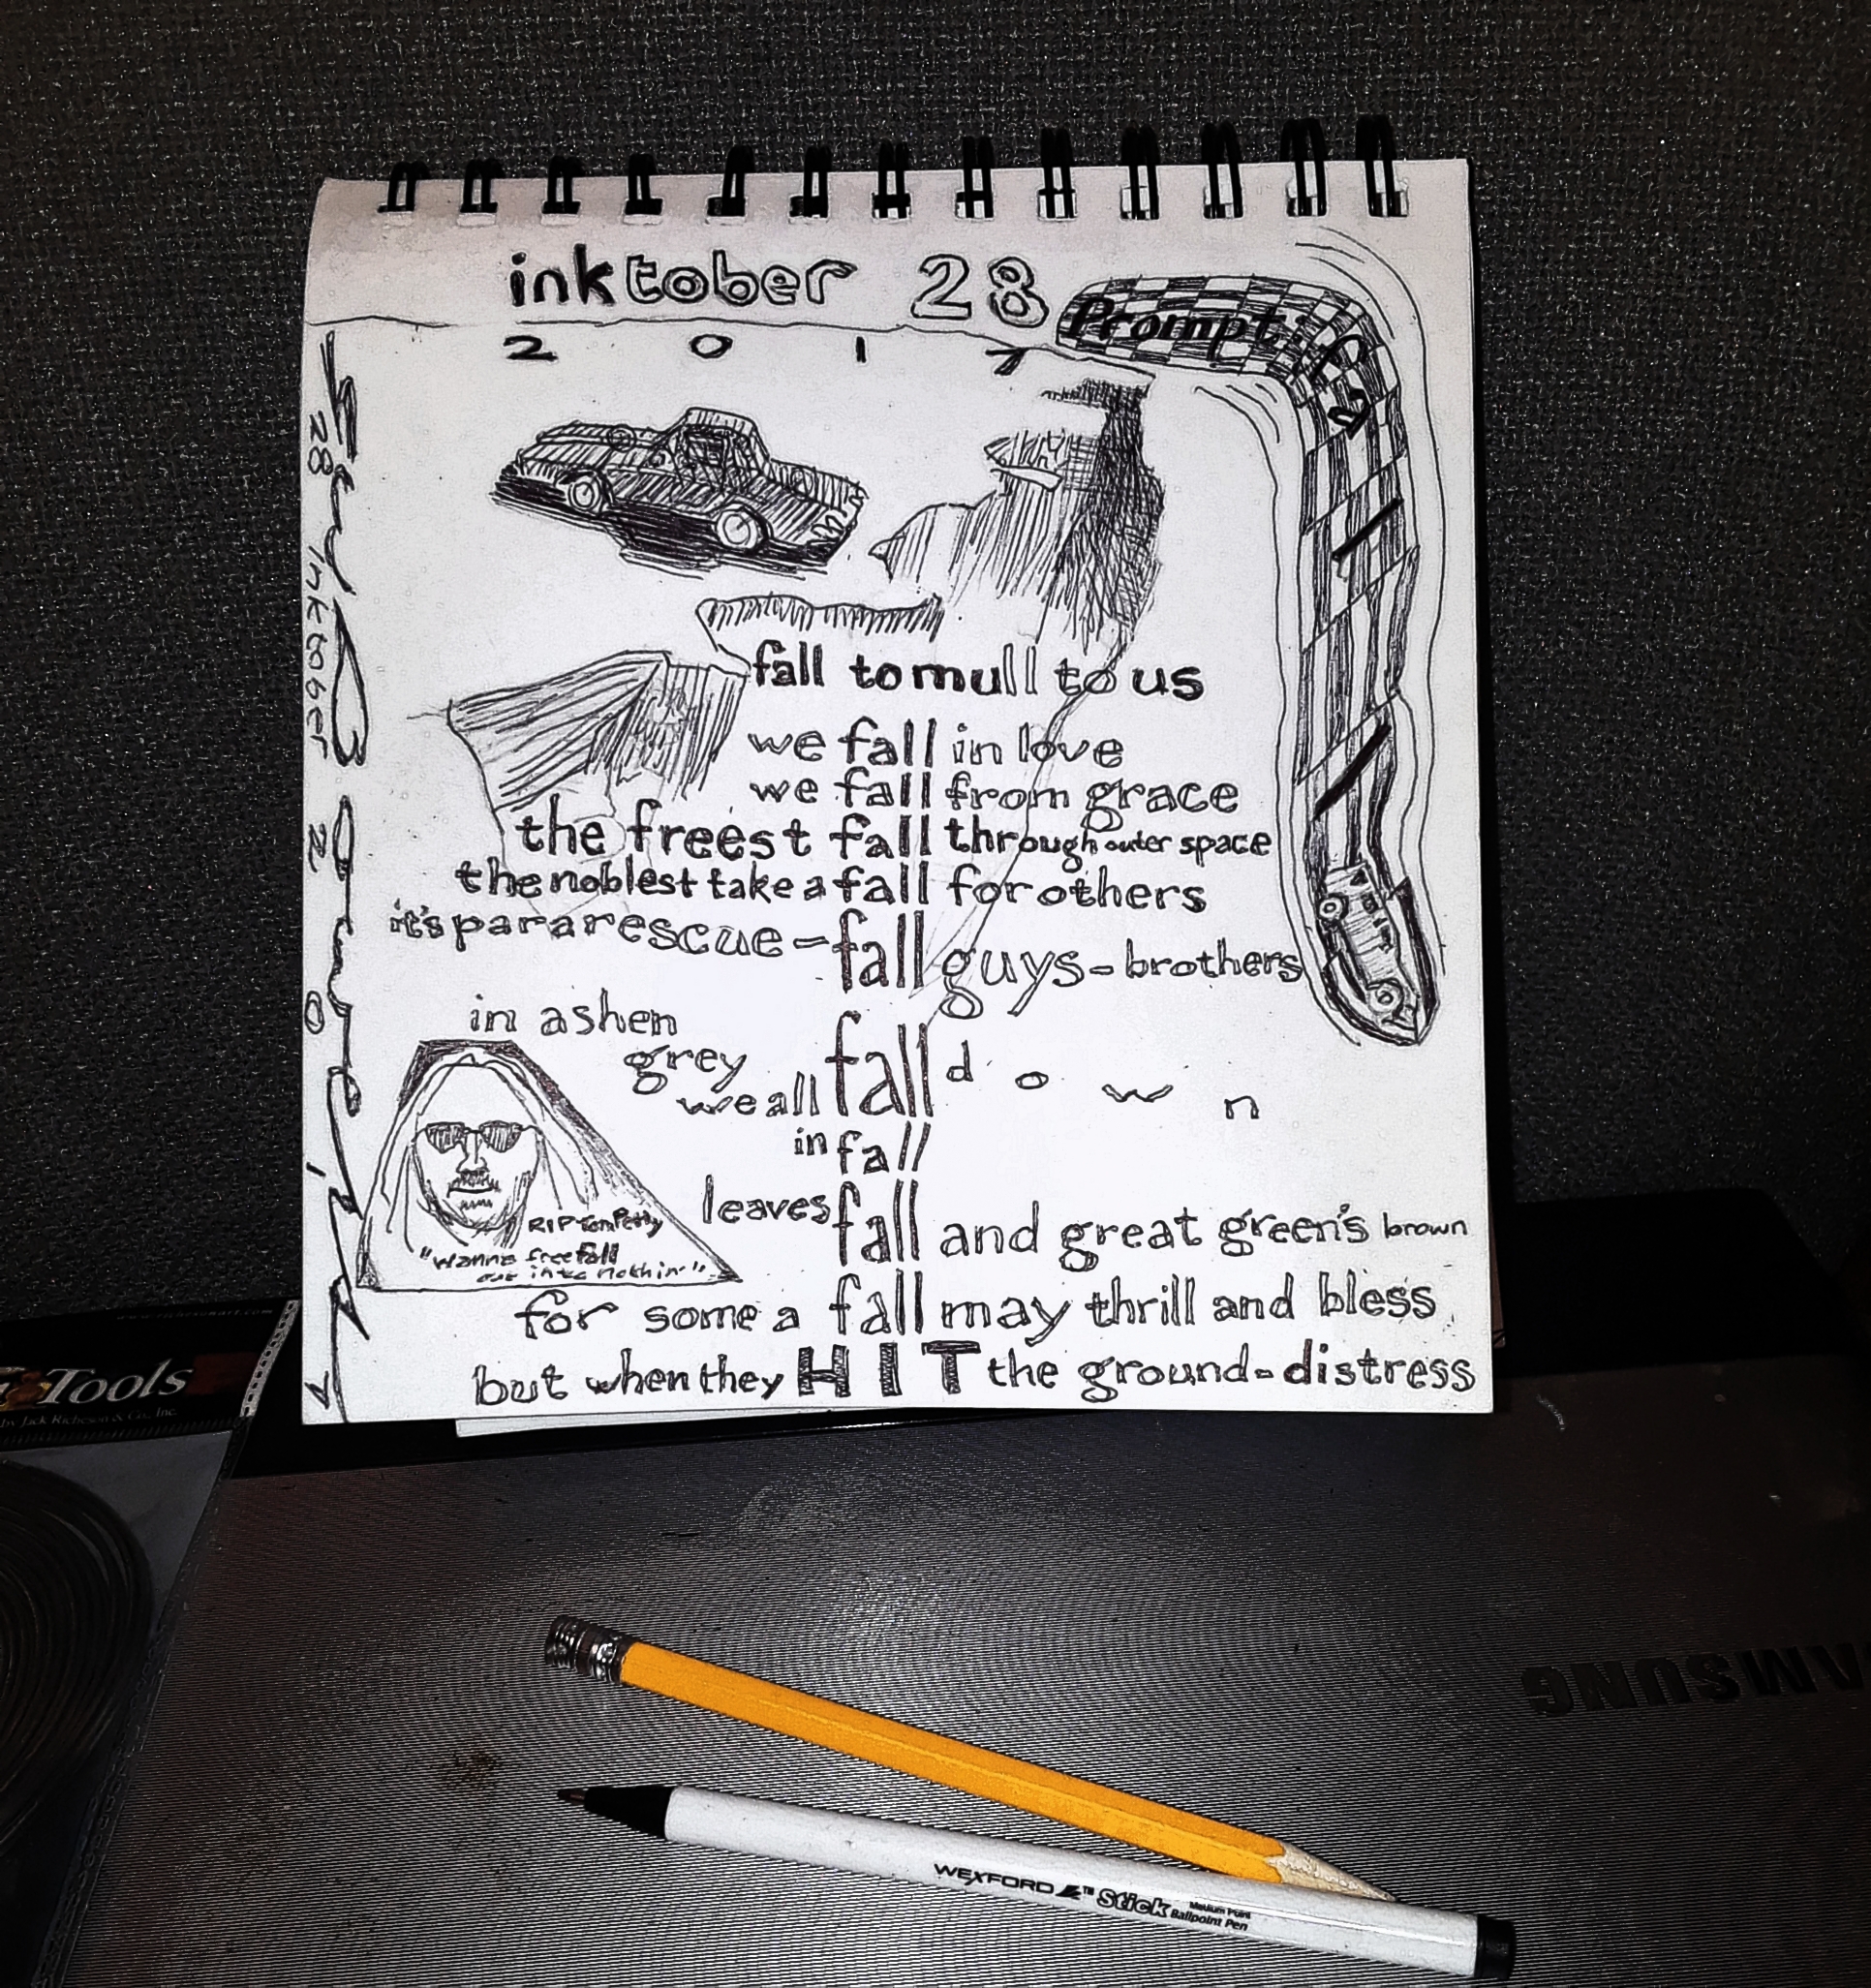 inktober 28
Prompt:
2 0 1 7
fall to mull to us
we fall in love
we fall from grace
the freest fall through outer space
the noblest take a fall for others
it's pararescue - fall guys - brothers
in ashen
grey
we all fall d o w n
in fall
leaves fall and great green's brown
RIP Tom Petty
"Wanna free fall
out into nothin'"
for some a fall may thrill and bless
but when they HIT the ground - distress
28 inktober 2017
Tools
by Jack Richeson & Co., Inc.
AMSUNG
WEXFORD ™ Stick Medium Point
Ballpoint Pen